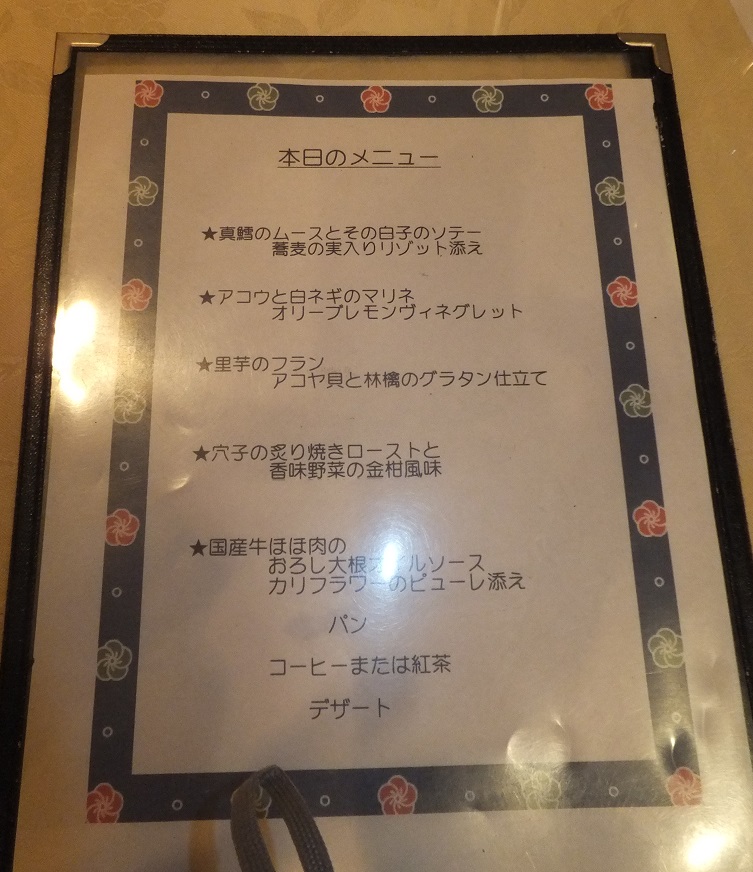 本日のメニュー
★真鱈のムースとその白子のソテー
蕎麦の実入りリゾット添え
★アコウと白ネギのマリネ
オリーブレモンヴィネグレット
★里芋のフラン
アコヤ貝と林檎のグラタン仕立て
★穴子の炙り焼きローストと
香味野菜の金柑風味
★国産牛ほほ肉の
おろし大根 ルソース
カリフラワーのピューレ添え
パン
コーヒーまたは紅茶
デザート